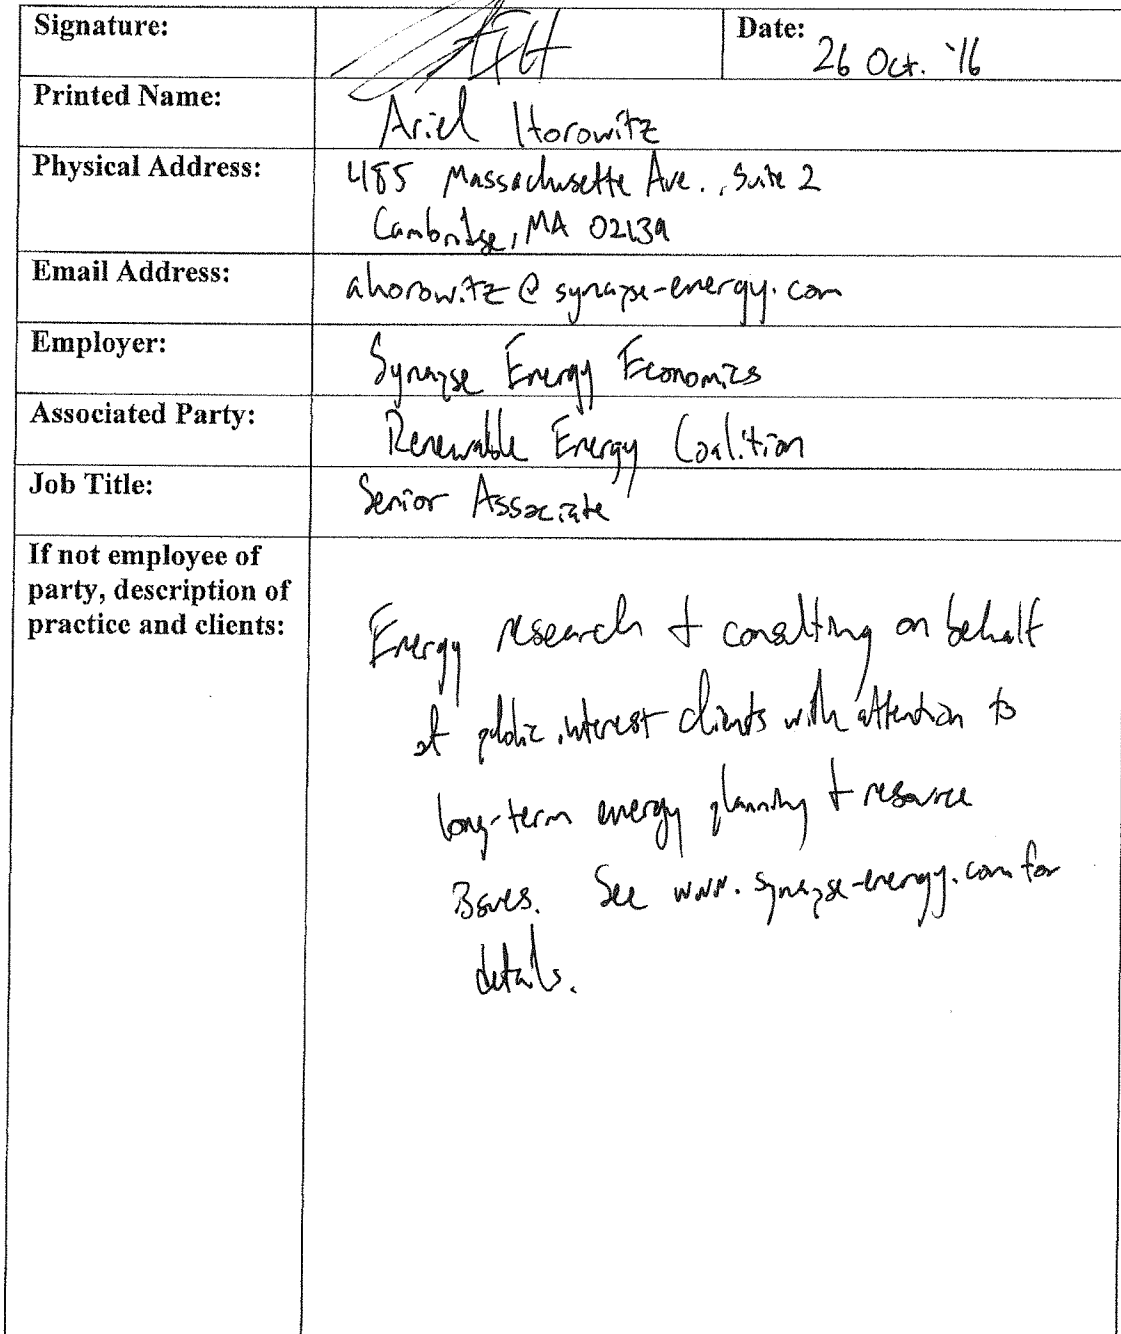 Signature:
Date: 26 Oct. '16
Printed Name: Ariel Horowitz
Physical Address: 485 Massachusetts Ave., Suite 2
Cambridge, MA 02139
Email Address: ahorowitz@synapse-energy.com
Employer: Synapse Energy Economics
Associated Party: Renewable Energy Coalition
Job Title: Senior Associate
If not employee of
party, description of
practice and clients:
Energy research + consulting on behalf
of public interest clients with attention to
long-term energy planning + resource
issues. See www.synapse-energy.com for
details.